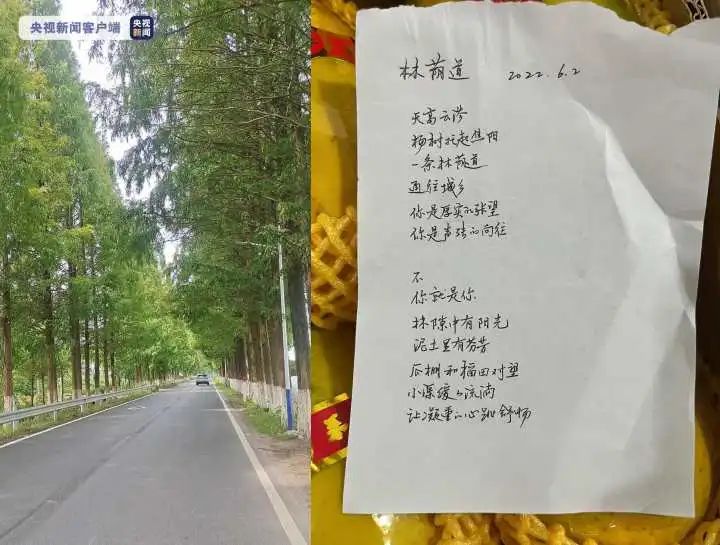 央视新闻客户端
央视新闻
林荫道 2022.6.2
天高云
杨树托起焦阳
一条林荫道
通往城乡
你是厚实的张望
你是的向往
不
你就是你
林隙中有阳光
泥土里有芬芳
瓜棚和福田对望
小渠缓々流淌
让凝重的心跳舒畅